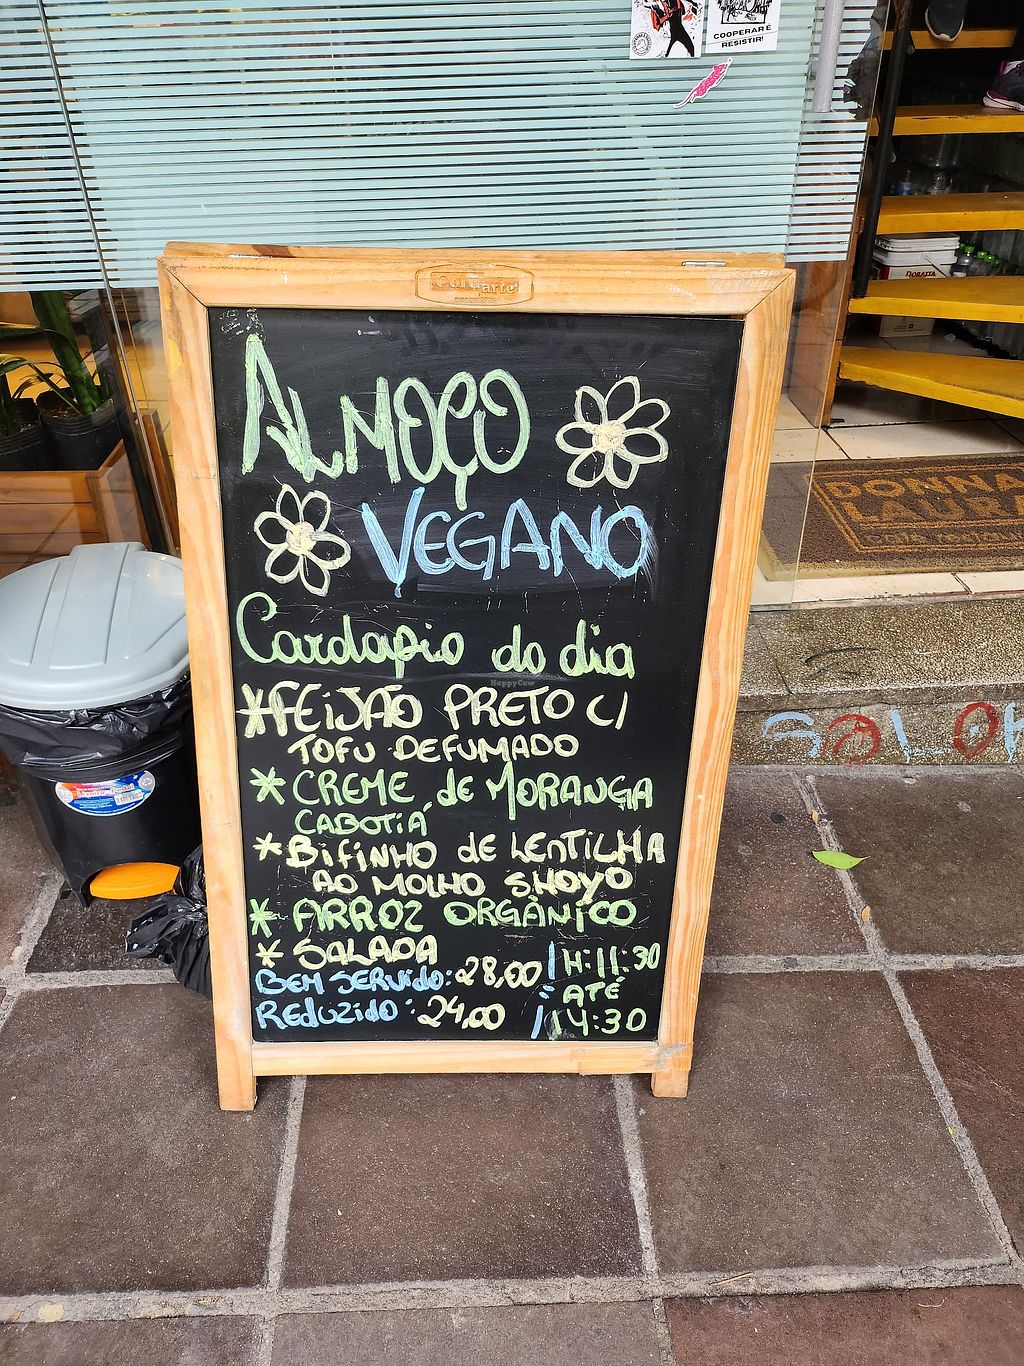 COOPERAR É
RESISTIR!
DORALTA
DONNA
LAURA
ALMOÇO
VEGANO
Cardapio do dia
HappyCow
*FEIJÃO PRETO C/
TOFU DEFUMADO
* CREME de MORANGA
CABOTIÁ
* BifiNHO de LENTILHA
AO MOLHO SHOYO
* ARROZ ORGÂNICO
* SALADA
BEM SERVIDO: 28,00
REDUZIDO: 24,00
H: 11:30
ATÉ
14:30